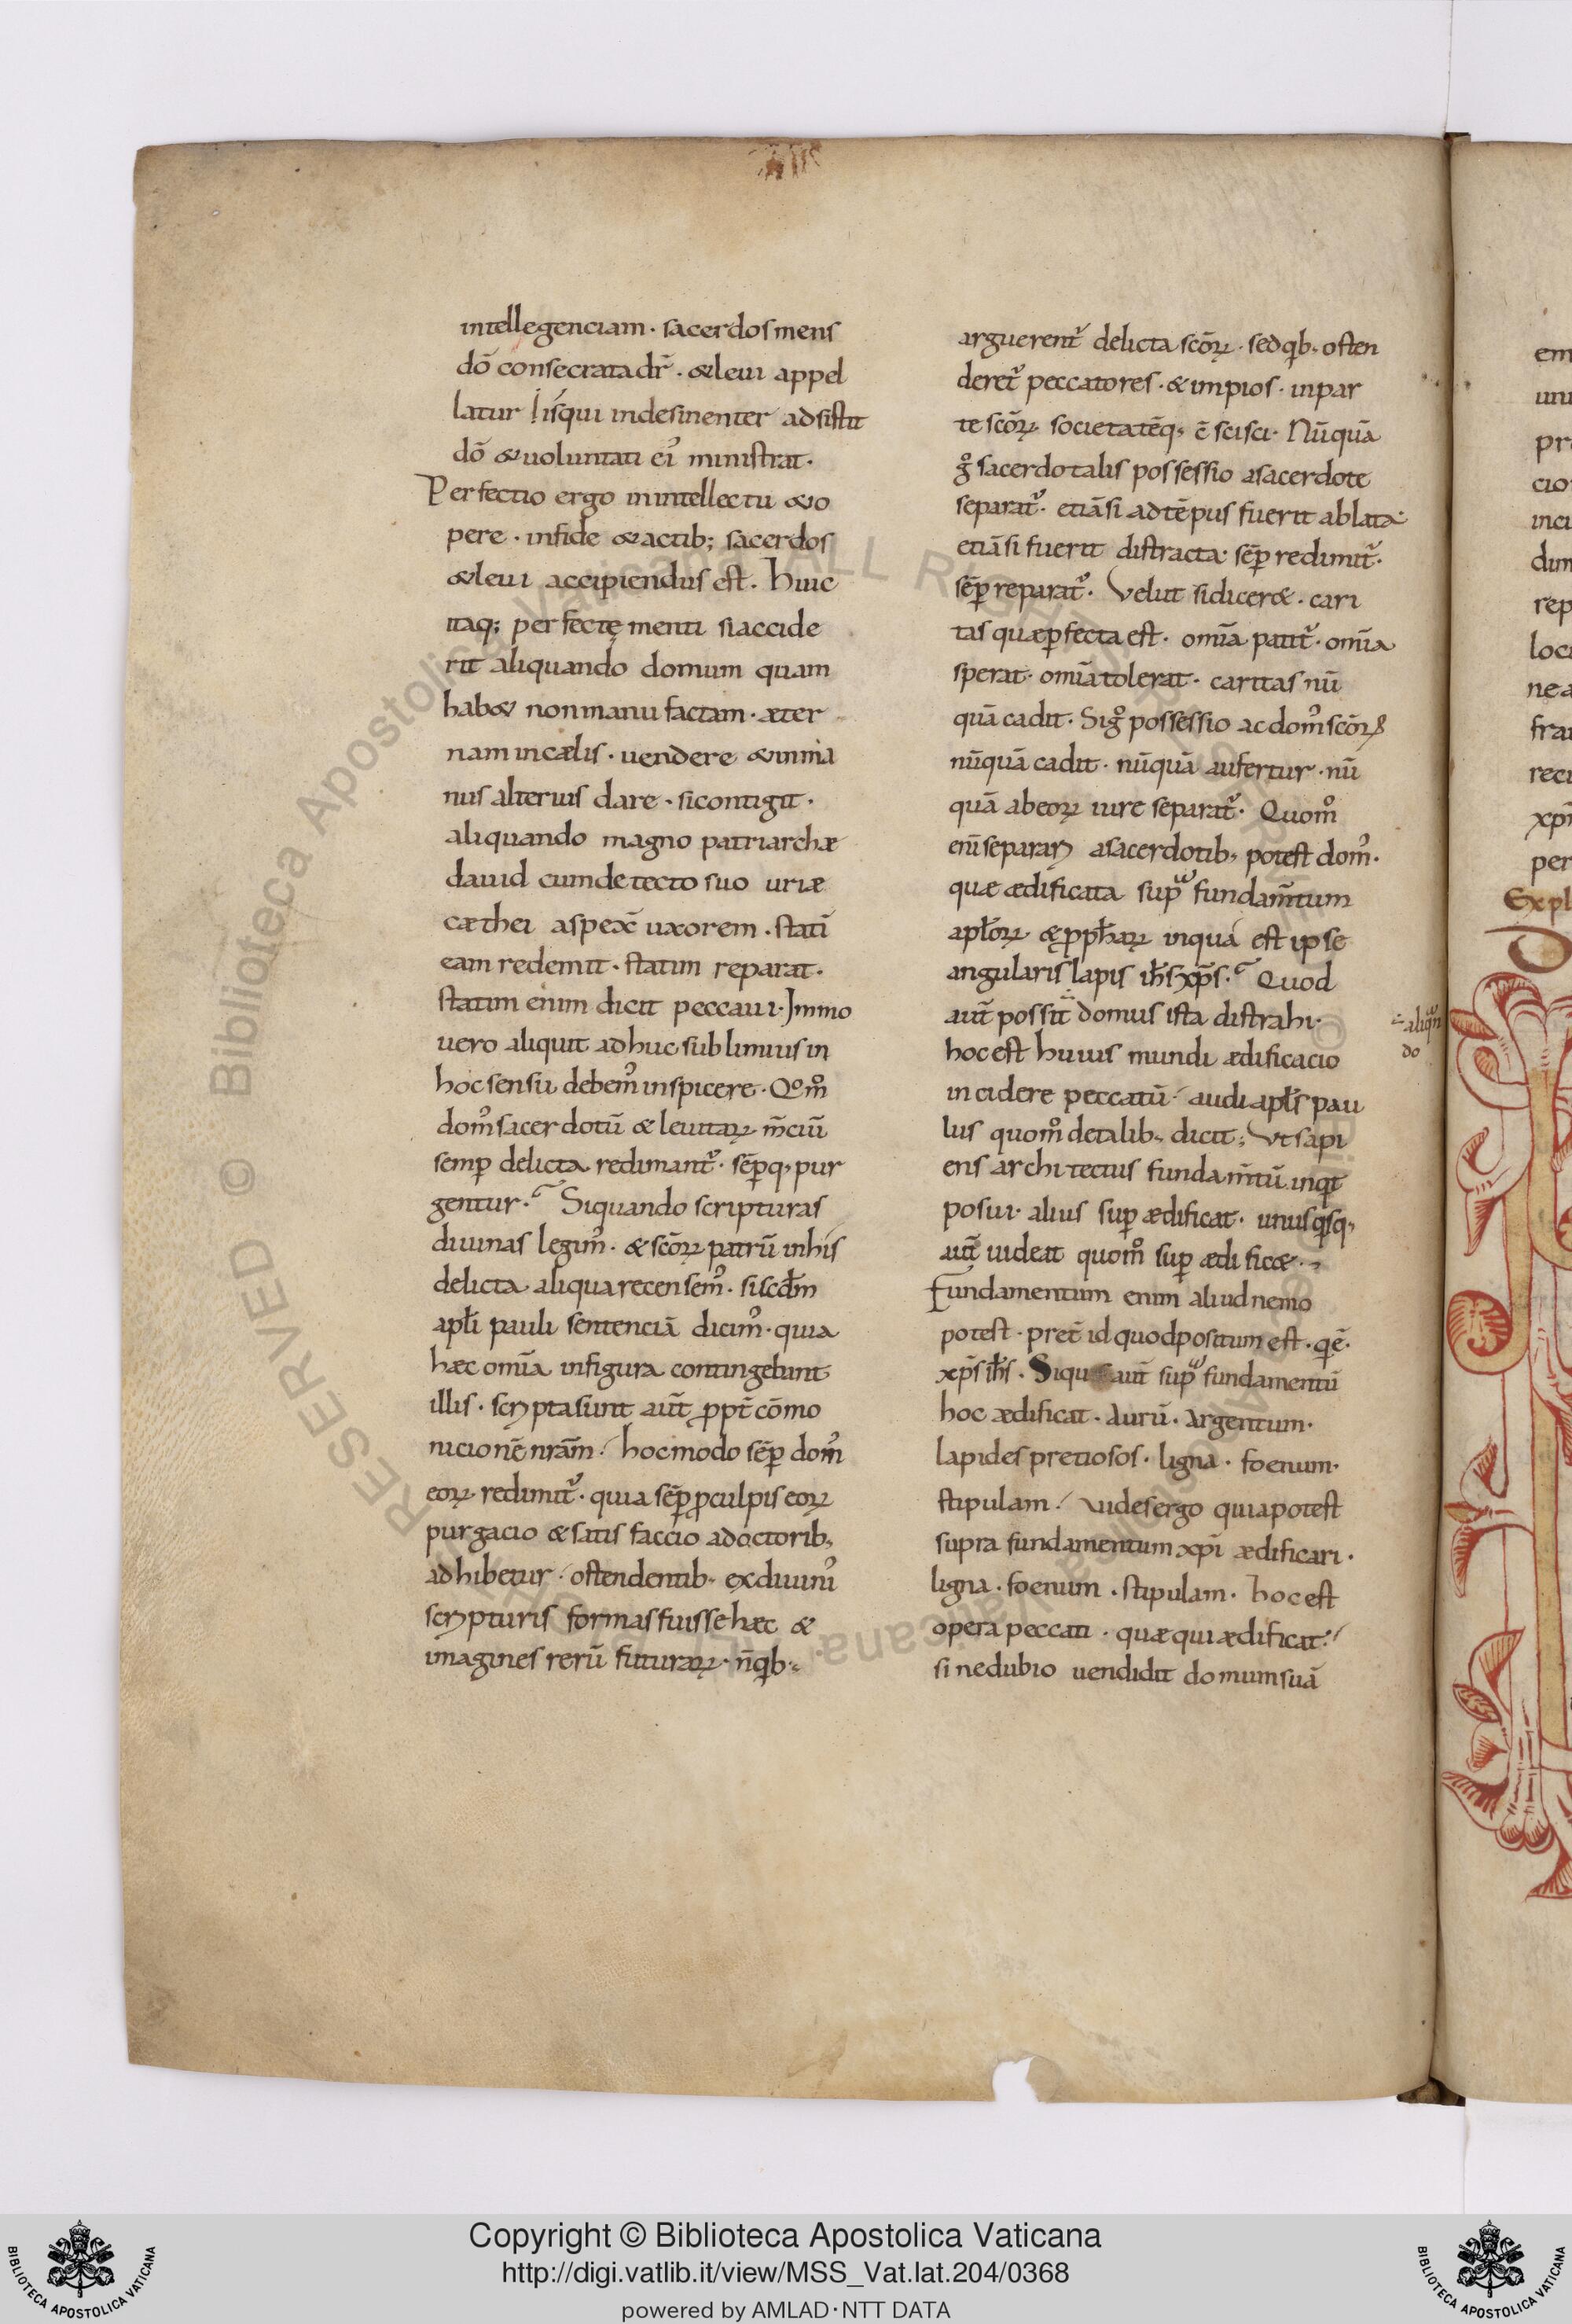 intellegenciam · sacerdos mens
dō consecrata dr̄ · & leui appel
latur · Iis qui indesinenter adsistit
dō & uoluntati ei᾽ ministrat ·
Perfectio ergo in intellectu & o
pere · infide & actib; sacerdos
& leui accipiendus est · Huic
itaq; perfectę menti si accide
rit aliquando domum quam
hab& non manu factam · æter
nam in cælis · uendere & in ma
nus alterius dare · sicontigit ·
aliquando magno patriarchæ
dauid cum de tecto suo uriæ
cæthei aspex̄ uxorem · statī
eam redemit · statim reparat ·
statim enim dicit peccaui · Immo
uero aliquit adhuc sublimius in
hoc sensu debem᾽ inspicere · Qom̊
dom᾽ sacerdotū & leuitaꝝ m̄ciū
semꝑ delicta redimant᾽ · sēꝑq; pur
gentur · Siquando scripturas
diuinas legim᾽ · & scōꝝ patrū in his
delicta aliqua recensem᾽ · si scdm̄
apłi pauli sentenciā dicim᾽ · quia
hæc omīa in figura contingebant
illis · scrypta sunt aut̄ ꝓpt̄ cōmo
nicionē nrām · hoc modo sēꝑ dom᾽
eoꝝ redimit᾽ · quia sēꝑ ꝓ culpis eoꝝ
purgacio & satisfaccio a doctorib;
adhibetur · ostendentib; ex diuini᾽
scrypturis formas fuisse hæc &
imagines rerū futuraꝝ · n̄ qib;
arguerent᾽ delicta scōꝝ · sed qib; osten
deret᾽ peccatores · & impios · in par
te scōꝝ societatēq; ē scisci · Nūquā
g̊ sacerdotalis possessio a sacerdote
separat᾽ · etiā si ad tēpus fuerit ablata
etiā si fuerit distracta · sēꝑ redimit᾽ ·
sēꝑ reparat᾽ · Velut si dicer& · cari
tas quæ ꝑfecta est · omīa patit᾽ · omīa
sperat · omīa tolerat · caritas nū
quā cadit · Si g̊ possessio ac dom᾽ scōꝝ
nūquā cadit · nūquā aufertur · nū
quā ab eoꝝ iure separat᾽ · Quom̊
eni separari a sacerdotib; potest dom᾽ ·
quæ ædificata supͣ fundam̄tum
apłoꝝ & ꝓphaꝝ in qua est ipse
angularis lapis ihs xp̄s · Quod
aut̄ possit domus ista distrahi ·
÷ aliqͣn
do
hoc est huius mundi ædificacio
incidere peccatū · audi apłs pau
lus quom̊ de talib; dicit; Vt sapi
ens architectus fundam̄tū inqit
posui · alius suꝑ ædificat · unusqisq;
aut̄ uideat quom̊ suꝑ ædific& ·
Fundamentum enim aliud nemo
potest · pret̄ id quod positum est · qē ·
xp̄s ihs · Siqu aut̄ supͣ fundamentū
hoc ædificat · aurū · argentum ·
lapides pretiosos · ligna · foenum ·
stipulam · uides ergo quia potest
supra fundamentum xp̄i ædificari ·
ligna · foenum · stipulam · hoc est
opera peccati · quæ qui ædificat ·
sine dubio uendidit domum suā
Copyright © Biblioteca Apostolica Vaticana
http://digi.vatlib.it/view/MSS_Vat.lat.204/0368
powered by AMLAD·NTT DATA